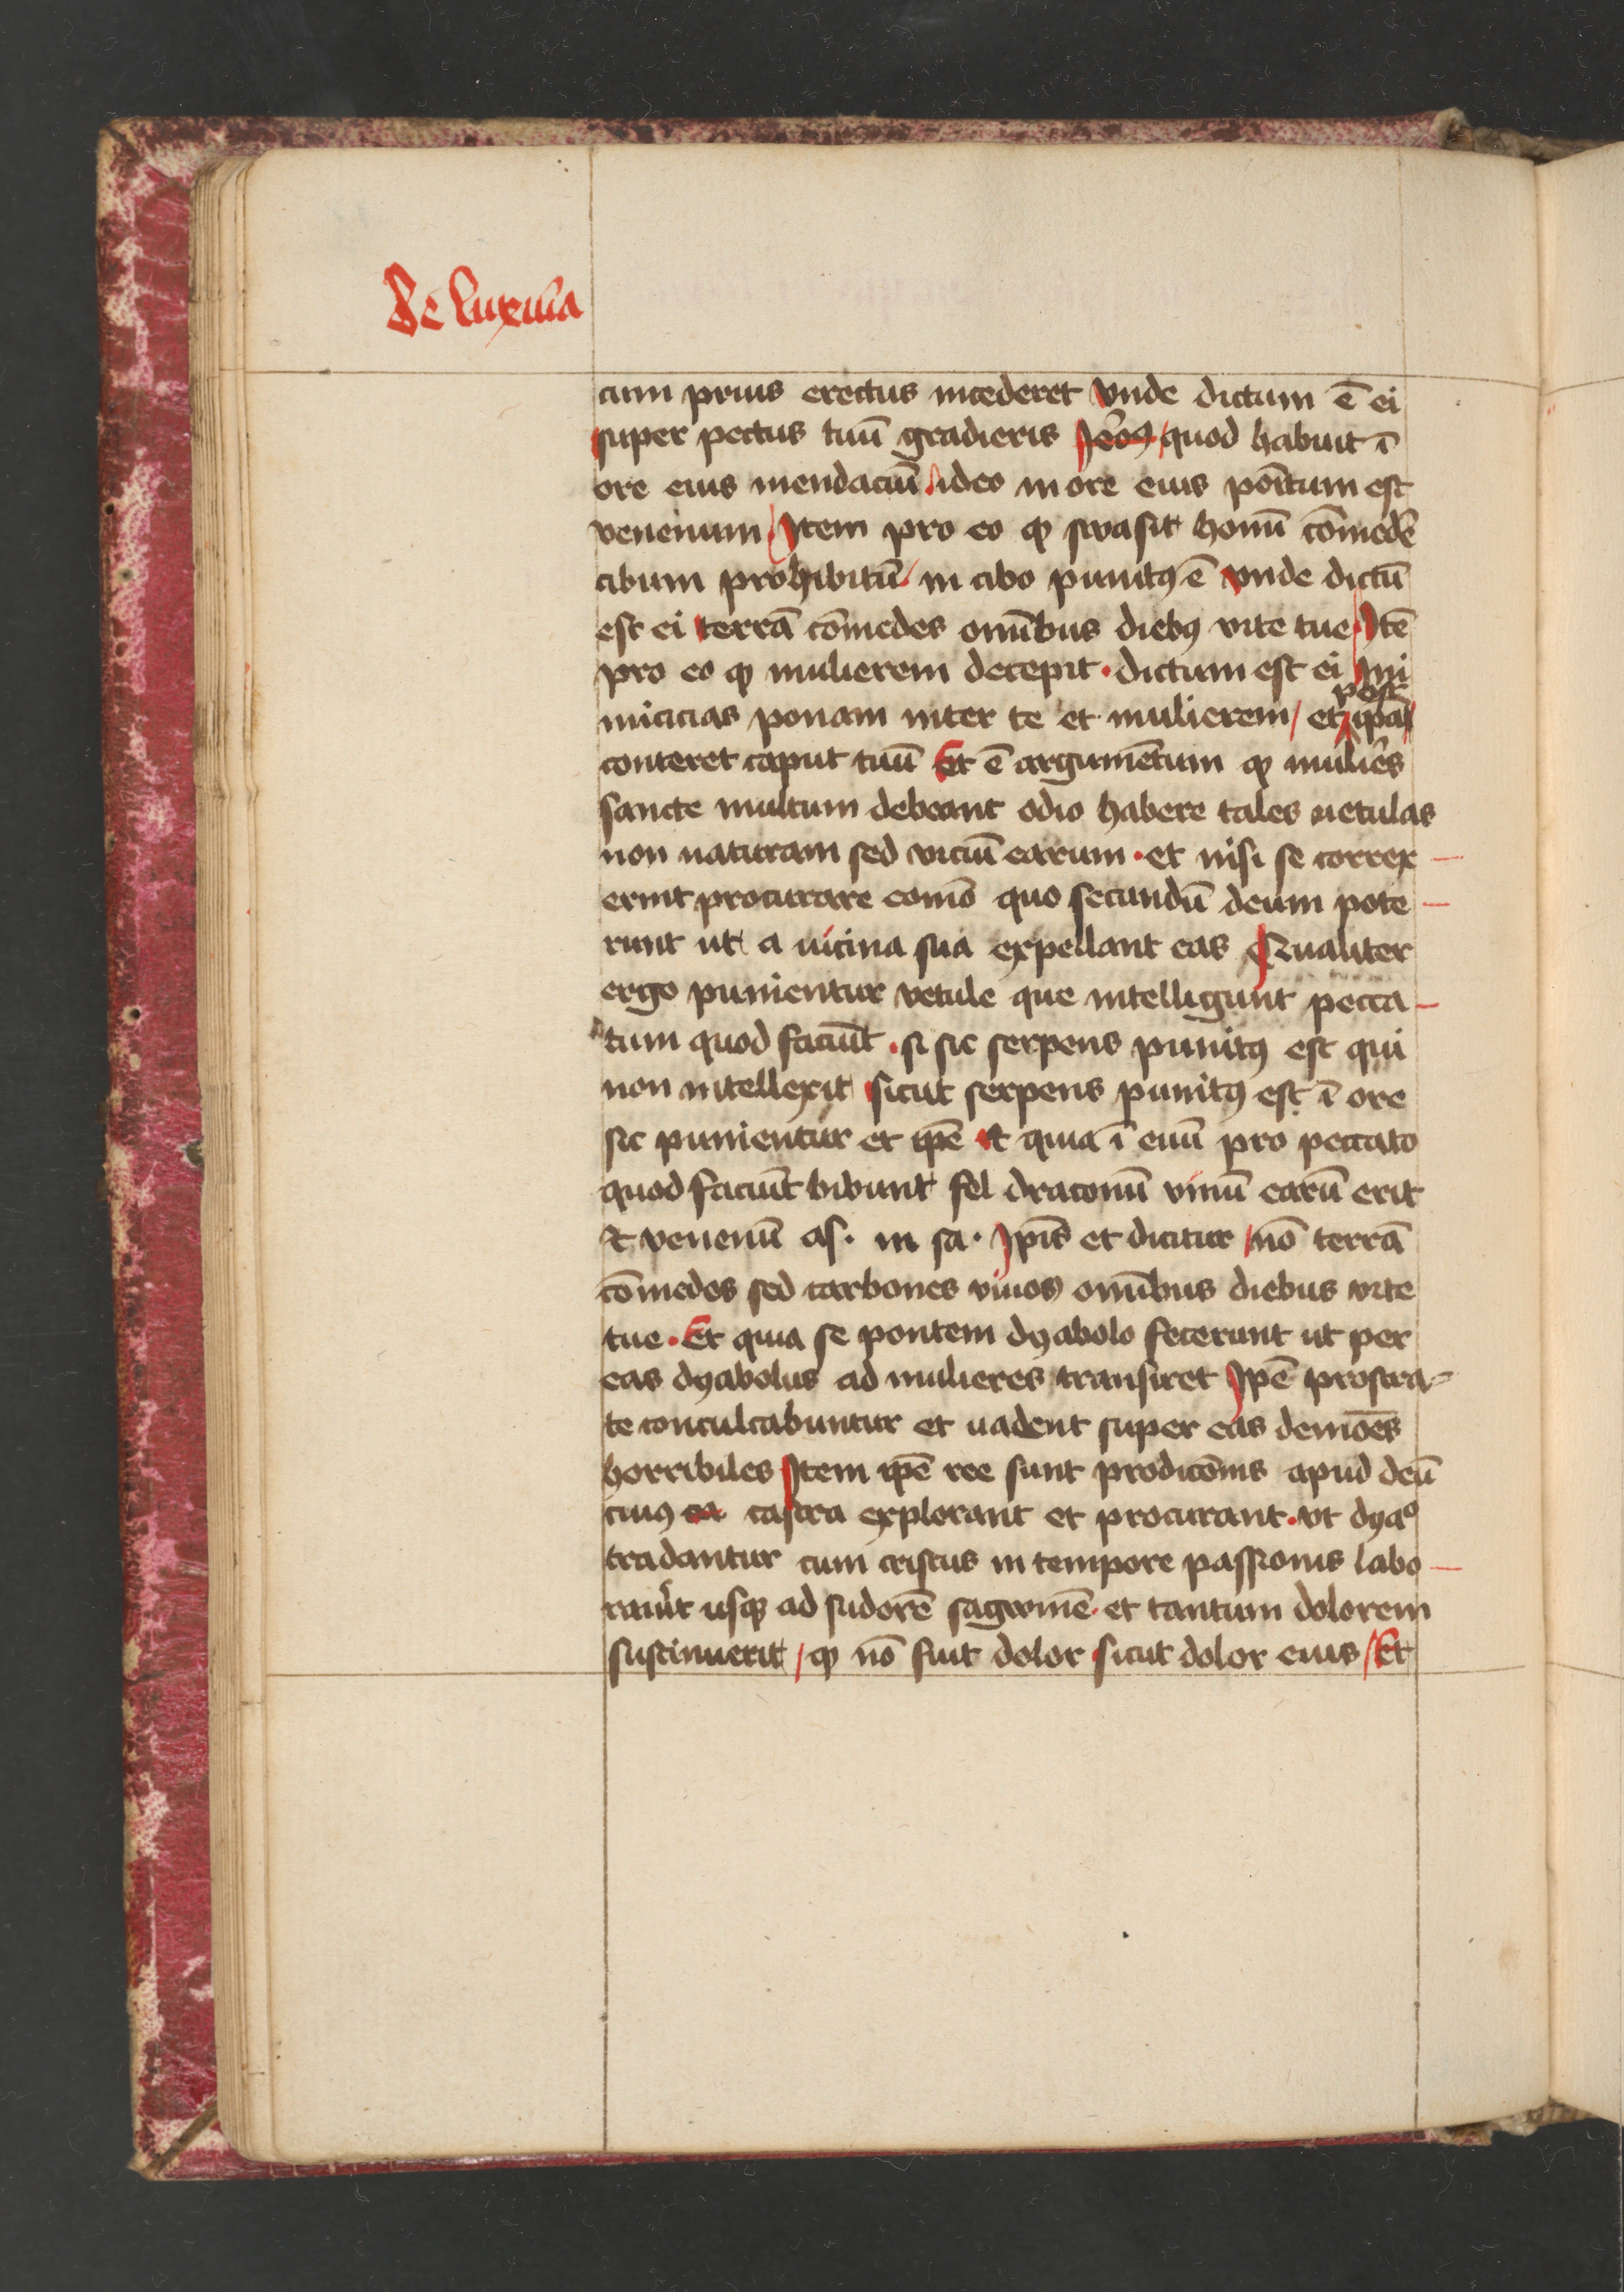 De luxuria
cum prius erectus incederet vnde dictum ē ei
super pectus tuū gradieris quod habuit ī
ore eius mendaciū ideo in ore eius poītum est
venenum Item pro eo ꝙ swasit homī cōmedē
cibum prohibitū in cibo punitꝰ ē vnde dictū
est ei terrā cōmedes omībus diebꝰ vite tue Itē
pro eo ꝙ mulierem decepit · dictum est ei Ini
post
micicias ponam inter te et mulierem / et ipa
conteret caput tuū Et ē argumētum ꝙ mulieres
sancte multum debeant odio habere tales uetulas
non naturam sed viciū earum · et nisi se correx
erint procurare eomō quo secundū deum pote
runt ut a uicina sua expellant eas Qualiter
ergo punientur vetule que intelligunt pecca
tum quod faciūt · si sic serpens punitꝰ est qui
non intellexit sicut serpens punitꝰ est ī ore
sic punientur et ipē Et quia ī euū pro peccato
quod faciūt bibunt fel draconū vinū earū erit
Et venenū as. in sa. Ipīs et dicitur nō terrā
cōmedes sed carbones viuos omībus diebus vite
tue · Et quia se pontem dyabolo fecerunt ut per
eas dyabolus ad mulieres transiret Ipē prostra
te conculcabuntur et uadent super eas demōes
horribiles Item ipē ree sunt prodicōnis apud deū
cuiꝰ castra explorant et procurant · vt dyaᵒ
tradantur cum cristus in tempore passionis labo
rauīt usqꝫ ad sudorē sagwinē · et tantum dolorem
sustinuerit / ꝙ nō fuit dolor sicut dolor eius / Et